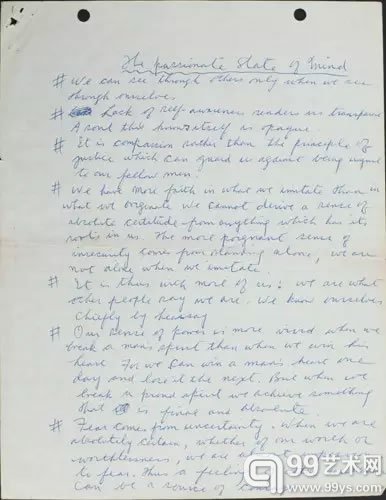 The passionate State of Mind
# We can see through others only when we see
through ourselves.
# Lack of self-awareness renders us transparent.
A soul that knows itself is opaque.
# It is compassion rather than the principle of
justice which can guard us against being unjust
to our fellow men.
# We have more faith in what we imitate than in
what we originate. We cannot derive a sense of
absolute certitude from anything which has its
roots in us. The more poignant sense of
insecurity comes from standing alone; we are
not alone when we imitate.
# It is thus with most of us: we are what
other people say we are. We know ourselves
chiefly by hearsay
# Our sense of power is more vivid when we
break a man's spirit than when we win his
heart. For we can win a man's heart one
day and lose it the next. But when we
break a proud spirit we achieve something
that is final and absolute.
# Fear comes from uncertainty. When we are
absolutely certain, whether of our worth or
worthlessness, we are almost
to fear. Thus a feeling
can be a source of
99艺术网
www.99ys.com